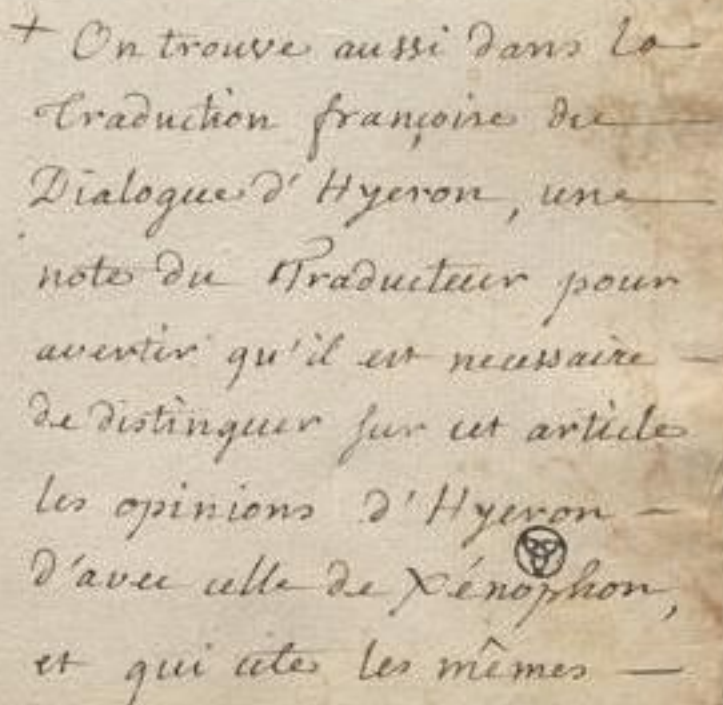 + On trouve aussi dans la
Traduction françoise du
Dialogue d'Hyeron, une
note du Traducteur pour
avertir qu'il est necessaire
de distinguer sur cet article
les opinions d'Hyeron
d'avec celle de Xénophon,
et qui cite les mêmes